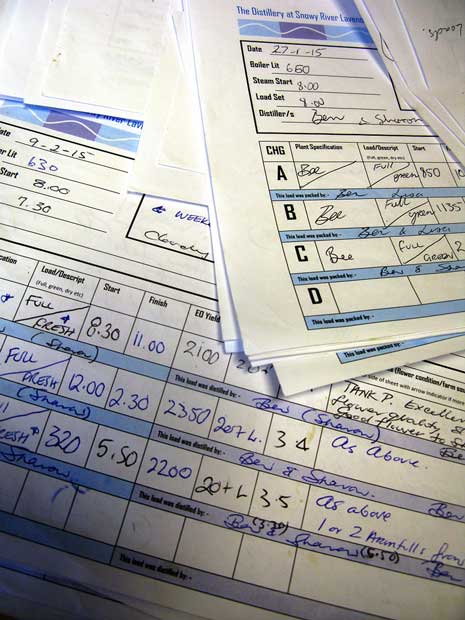 The Distillery at Snowy River Laven
Date 27-1-15
Boiler Lit 650
Steam Start 8.00
Load Set
Distiller/s Ben & Sharon
CHG Plant Specification Load/Descript Start
(Full, green, dry etc)
A Bee Full green 850
This load was packed by:- Ben
B Bee Full green 1135
This load was packed by:- Ben & Lisa
C Bee Full GREEN 2
This load was packed by:- Ben & S
D
This load was packed by:-
wy River Lav
ate 9-2-15
r Lit 630
8.00
7.30
& WEEK
Cloudy
cation Load/Descript Start Finish EO Yield
(Full, green, dry etc)
FULL FRESH 8.30 11.00 2100
(Sharon)
This load was distilled by:- Ben (Sharon)
(flower condition/farm sou
side of sheet with arrow indicator if more
TANK P. Excellen
Full FRESH 12.00 2.30 2350 20+L. 34 As Above.
Sharon
This load was distilled by:- Ben & Sharon.
Ben
FRESH 320 5.50 2200 20+L 3.5 As above
1 or 2 Armfulls from
Sharon
This load was distilled by:- Ben (3.20) & Sharon (5.50)
Ben
This load was distilled by:-